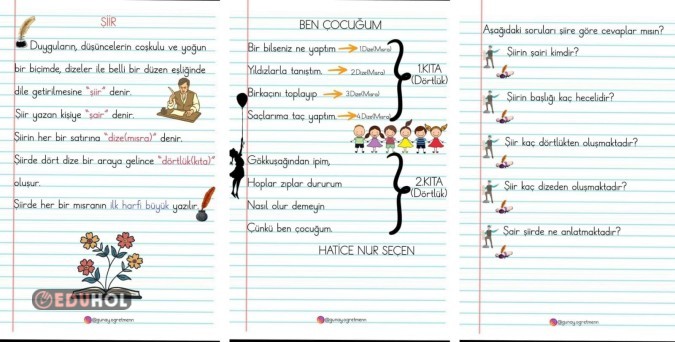 ŞİİR
Duyguların, düşüncelerin coşkulu ve yoğun
bir biçimde, dizeler ile belli bir düzen eşliğinde
dile getirilmesine "şiir" denir.
Şiir yazan kişiye "şair" denir.
Şiirin her bir satırına "dize(mısra)" denir.
Şiirde dört dize bir araya gelince "dörtlük(kıta)"
oluşur.
Şiirde her bir mısranın ilk harfi büyük yazılır.
EDUHOL
@gunay.ogretmenn
BEN ÇOCUĞUM
Bir bilseniz ne yaptım 1.Dize(Mısra)
Yıldızlarla tanıştım. 2.Dize(Mısra)
Birkaçını toplayıp 3.Dize(Mısra)
Saçlarıma taç yaptım 4.Dize(Mısra)
1.KITA
(Dörtlük)
Gökkuşağından ipim,
Hoplar zıplar dururum
Nasıl olur demeyin
Çünkü ben çocuğum.
2.KITA
(Dörtlük)
HATİCE NUR SEÇEN
@gunay.ogretmenn
Aşağıdaki soruları şiire göre cevaplar mısın?
Şiirin şairi kimdir?
Şiirin başlığı kaç hecelidir?
Şiir kaç dörtlükten oluşmaktadır?
Şiir kaç dizeden oluşmaktadır?
Şair şiirde ne anlatmaktadır?
@gunay.ogretmenn